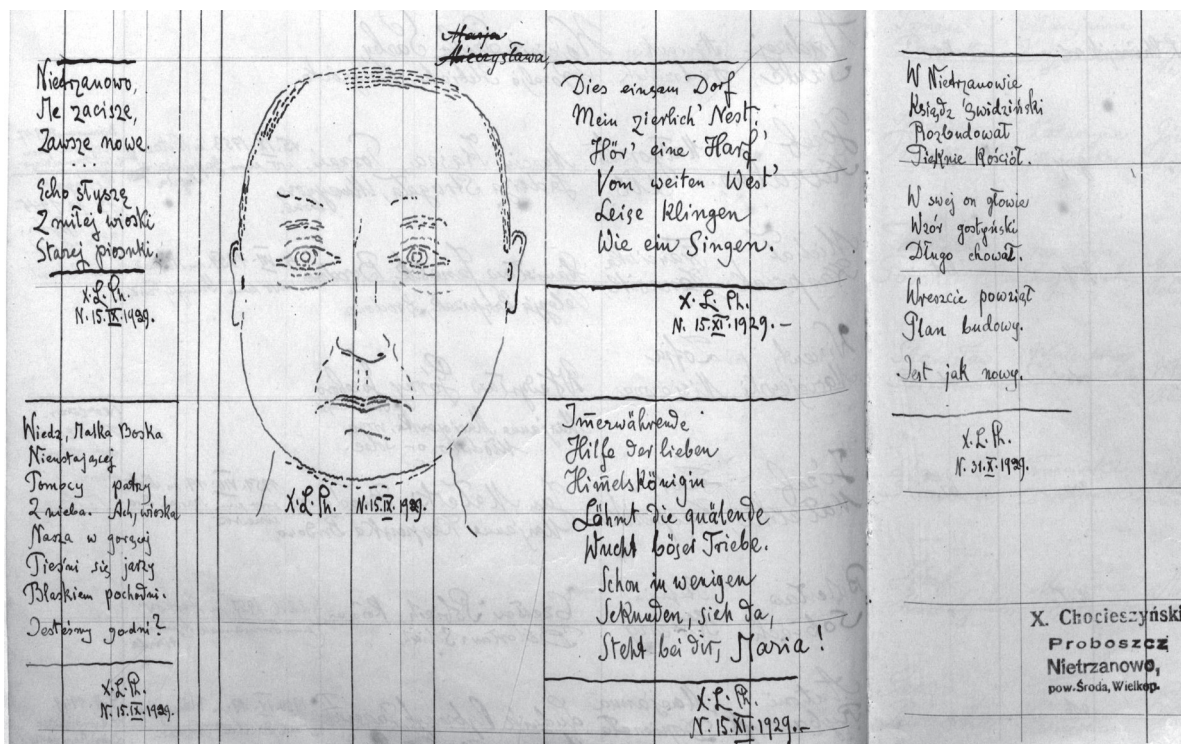 Marja
Mieczysława
Nietrzanowo,
Me zacisze,
Zawsze nowe.
Echo słyszę
Z miłej wioski
Starej piosnki.
X. L. Ph.
N. 15.IX.1929.
Wiedz, Matka Boska
Nieustającej
Pomocy patrzy
Z nieba. Ach, wioska
Nasza w gorącej
Pieśni się jarzy
Blaskiem pochodni.
Jesteśmy godni?
X. L. Ph.
N. 15.IX.1929.
X. L. Ph. N. 15.IX.1929.
Dies einsam Dorf
Mein zierlich' Nest.
Hör' eine Harf'
Vom weiten West'
Leise klingen
Wie ein Singen.
X. L. Ph.
N. 15.XI.1929.-
Im̅erwährende
Hilfe der lieben
Him̅elskönigin
Lähmt die quälende
Wucht böser Triebe.
Schon in wenigen
Sekunden, sieh da,
Steht bei dir, Maria!
X. L. Ph.
N. 15.XI.1929.-
W Nietrzanowie
Ksiądz Świdziński
Rozbudował
Pięknie Kościół.
W swej on głowie
Wzór gostyński
Długo chował.
Wreszcie powziął
Plan budowy.
Jest jak nowy.
X. L. Ph.
N. 31.X.1929.
X. Chocieszyński
Proboszcz
Nietrzanowo,
pow. Środa, Wielkop.